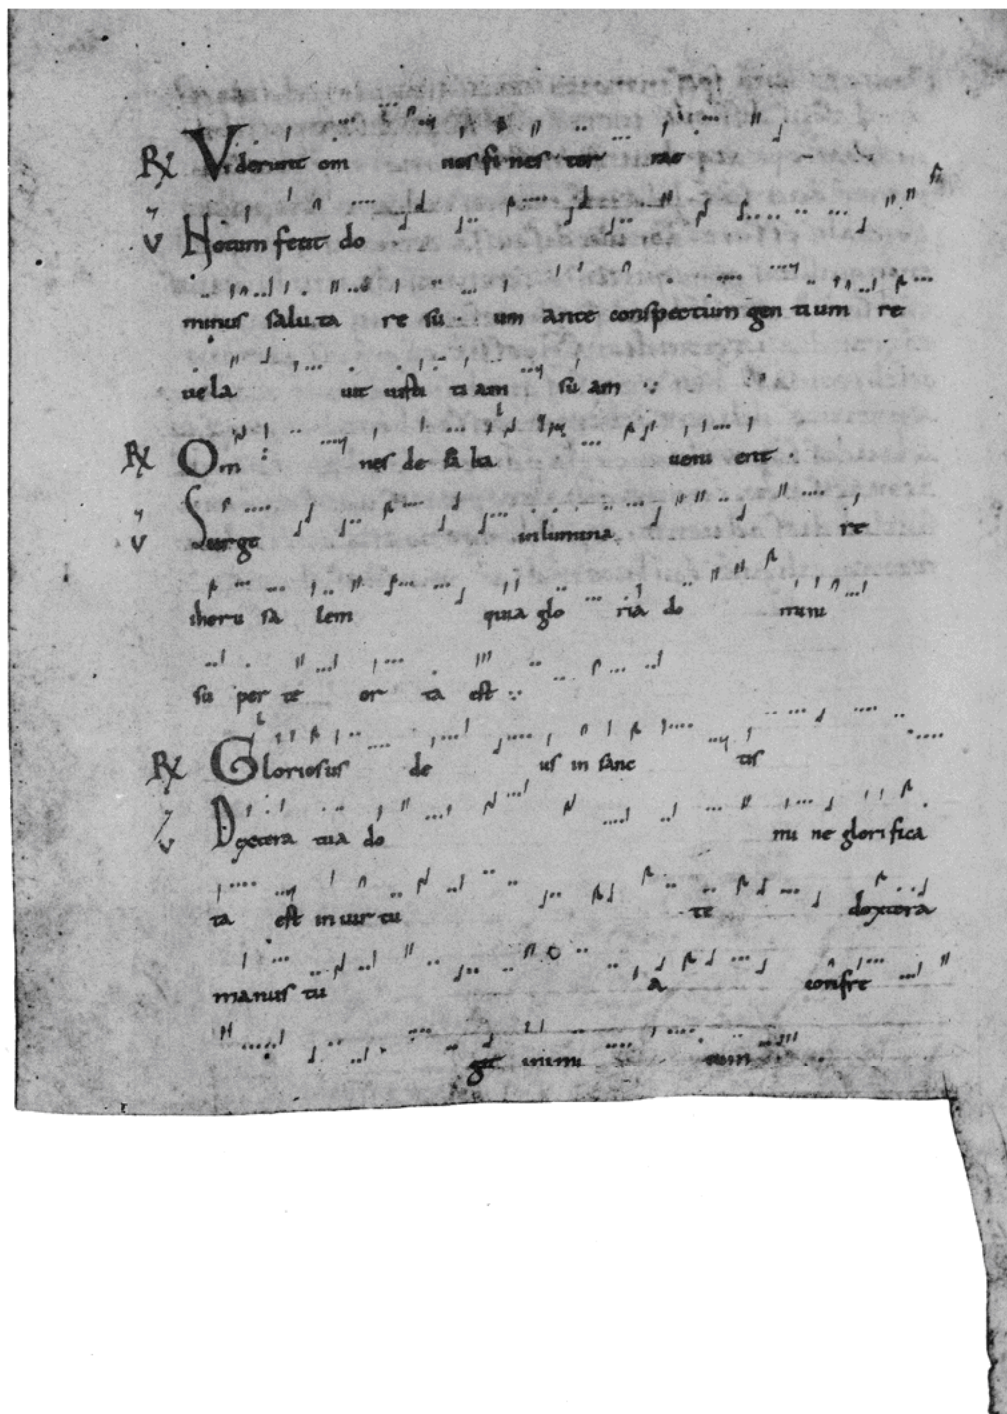 R Viderunt om nes fi nes ter rae
V Notum fecit do
minus saluta re su um ante conspectum gentium re
uela uit iusti ti am su am
R Om nes de saba ueni ent
V Surge inlumina re
iheru sa lem quia glo ria do mini
su per te or ta est
R Gloriosus de us in sanc tis
V Dextera tua do mi ne glorifica
ta est in uir tu te dextera
manus tu a confre
git inimi